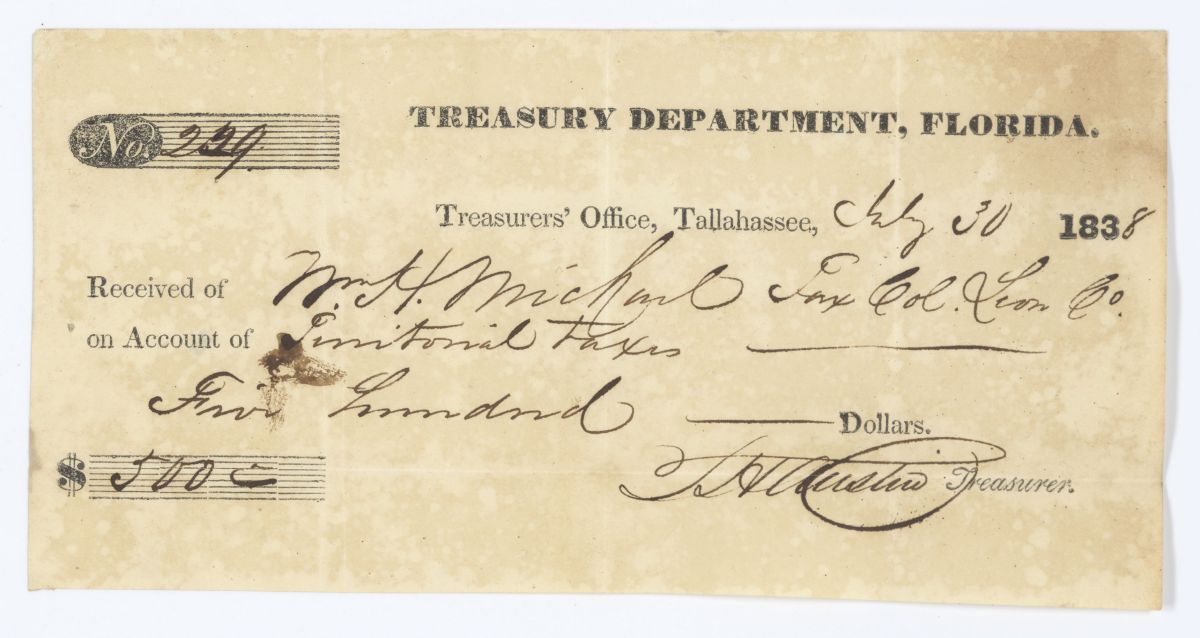 No. 229.
TREASURY DEPARTMENT, FLORIDA.
Treasurers' Office, Tallahassee, July 30 1838
Received of Wm. H. Michael Tax Col. Leon Co.
on Account of Territorial taxes
Five hundred Dollars.
$ 500
Austin Treasurer.